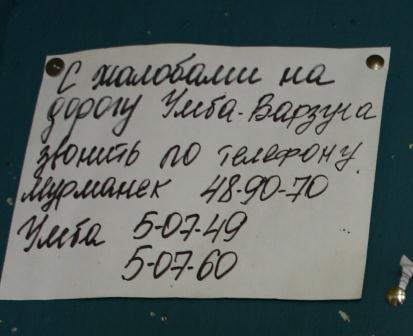 С жалобами на
дорогу Умба-Варзуга
звонить по телефону
Мурманск 48-90-70
Умба 5-07-49
5-07-60